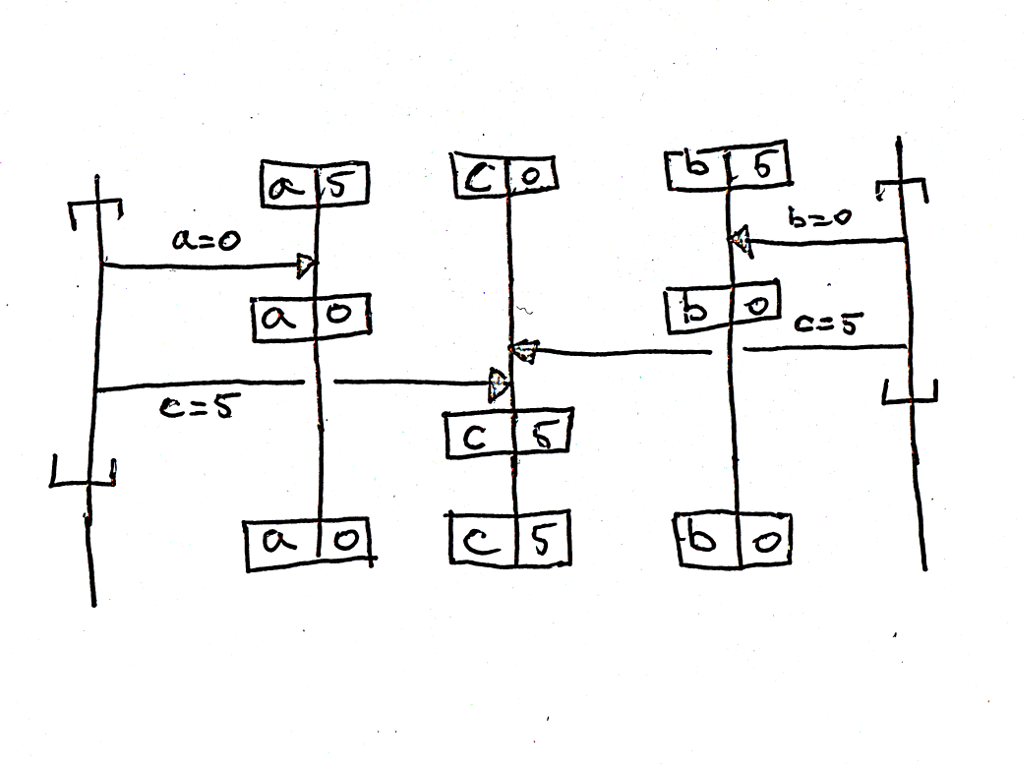 a 5
c 0
b 5
a=0
b=0
a 0
b 0
c=5
c=5
c 5
a 0
c 5
b 0